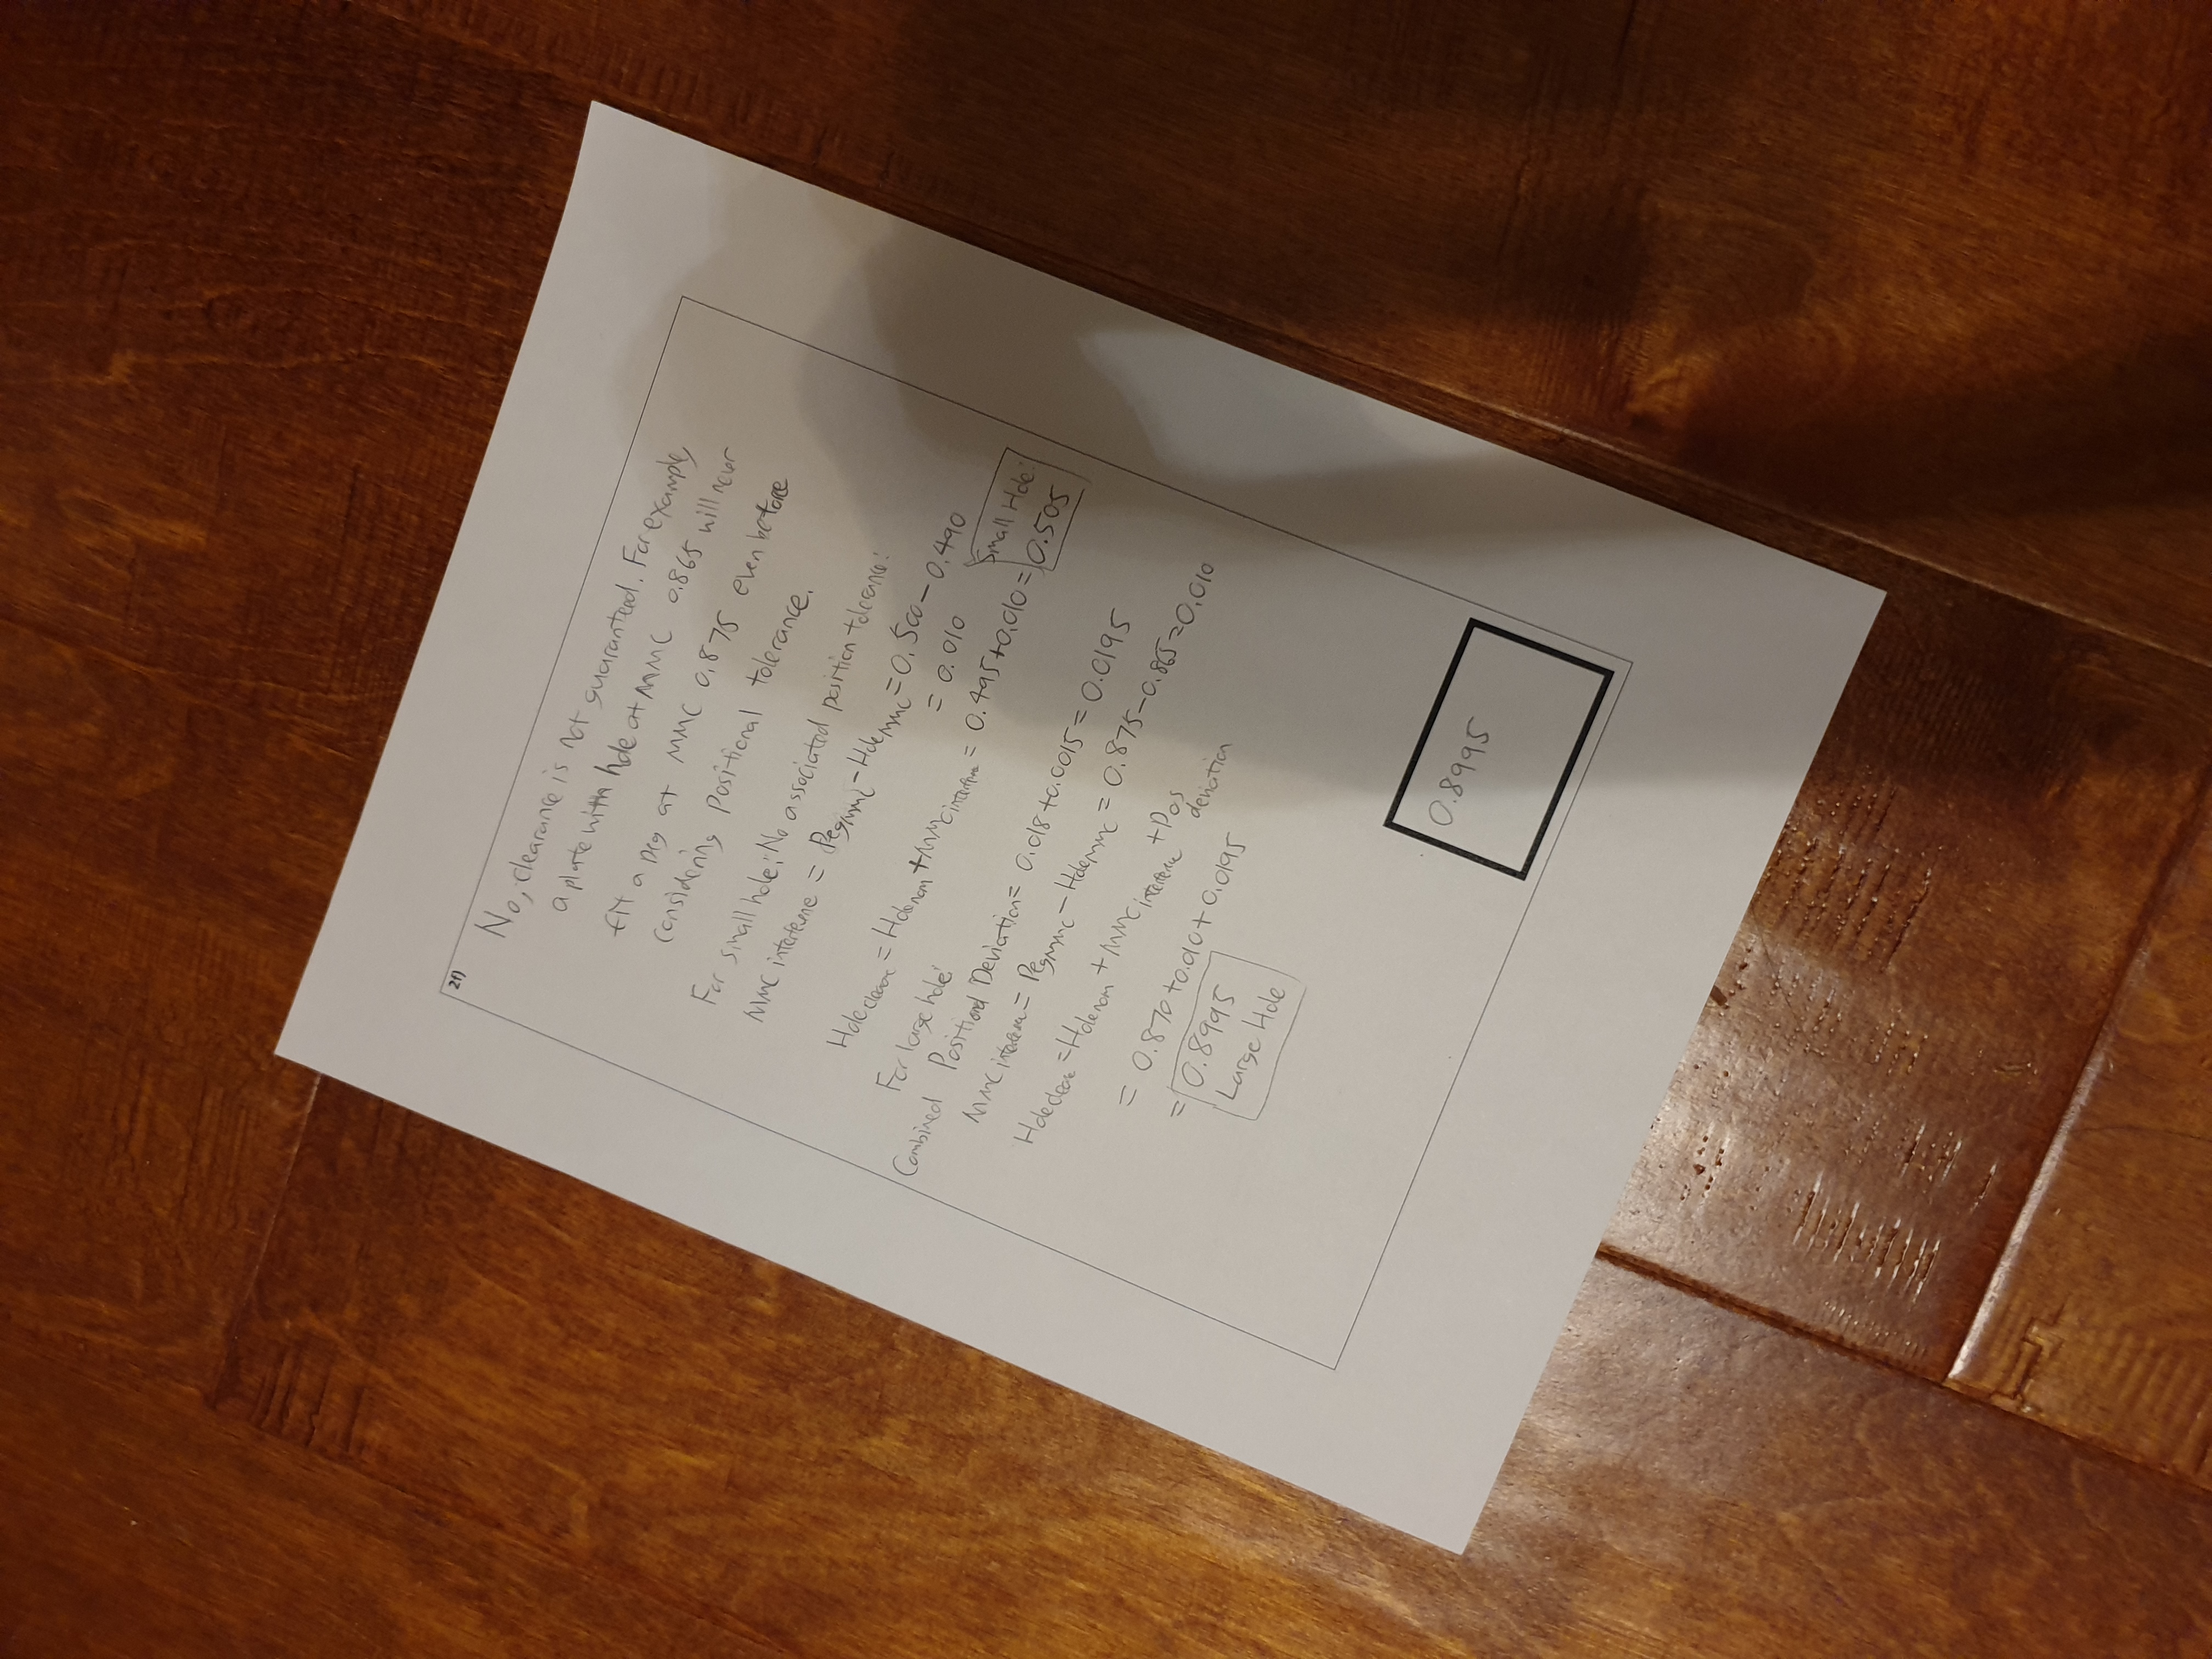 2f)
No, clearance is not guaranteed. For example,
a plate with hole at MMC 0.865 will never
fit a peg at MMC 0.875 even before
considering positional tolerance.
For small hole: No associated position tolerance:
MMC interference = Peg MMC - Hole MMC = 0.500 - 0.490
= 0.010
Hole clearance = Hole nom + MMC interference = 0.495 + 0.010 = 0.505
Small Hole:
For large hole:
Combined Positional Deviation = 0.018 + 0.0015 = 0.0195
MMC interference = Peg MMC - Hole MMC = 0.875 - 0.865 = 0.010
Hole clearance = Hole nom + MMC interference + Pos deviation
= 0.870 + 0.010 + 0.0195
= 0.8995
Large Hole
0.8995